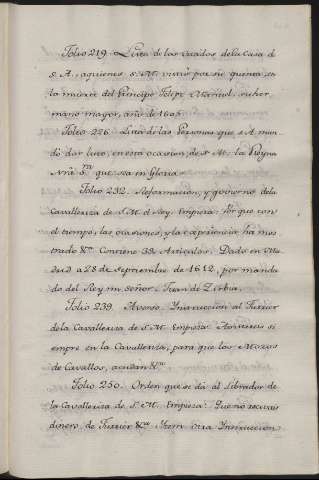 Folio 219. Lista de los criados de la Casa de
S. A., a quienes S. M. vistió por su quenta en
la muerte del Principe Felipe Manuel, su her
mano mayor, año de 1605.
Folio 226. Lista de las Personas que S. A. man
dó dar luto, en esta ocasion, de S. M. la Reyna
Nra Sra. que sea en Gloria.
Folio 232. Reformacion, y govierno de la
Cavalleriza de S. M. el Rey. Empieza: Por que con
el tiempo, las ocasiones, y la experiencia ha mos
trado &a. Contiene 39 Articulos. Dado en Ma
drid a 28 de septiembre de 1612, por manda
do del Rey mi señor. Juan de Ziriza.
Folio 239. Averso. Ynstruccion al Furrier
de la Cavalleriza de S. M. Empieza: Asistireis si
empre en la Cavalleriza, para que los Mozos
de Cavallos, acudan &a.
Folio 250. Orden que se dá al Librador de
la Cavalleriza de S. M. Empieza: Que no reciva
dinero, de Furrier &a. Ytem otra Ynstruccion